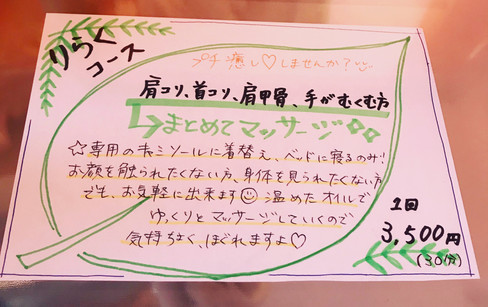 りらく
コース
プチ癒し♡しませんか?
肩コリ、首コリ、肩甲骨、手がむくむ方
まとめてマッサージ
☆専用のキャミソールに着替え、ベッドに寝るのみ!
お顔を触られたくない方、身体を見られたくない方
でも、お気軽に出来ます☺温めたオイルで
ゆっくりとマッサージしていくので
気持ちよく、ほぐれますよ♡
1回
3,500円
(30分)